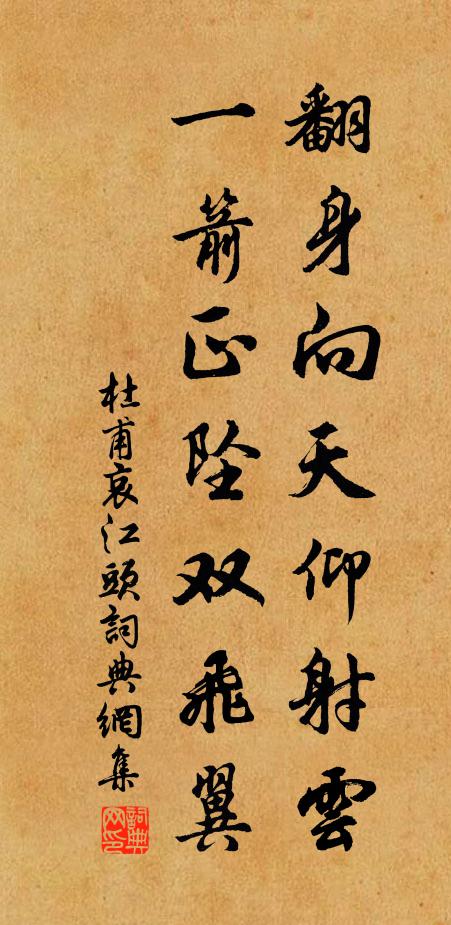 翻身向天仰射雲
一箭正坠双飛翼
杜甫哀江頭詞典網集
詞典网印